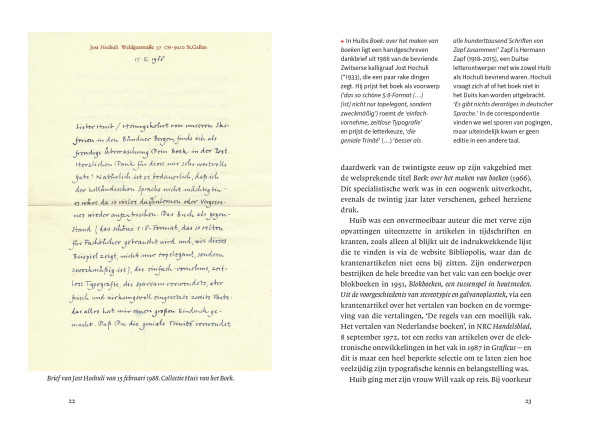 Jost Hochuli Waldgutstraße 37 CH-9010 St.Gallen
15 II 1988
Lieber Huib / Heimgekehrt von unseren Ski-
ferien in den Bündner Bergen finde ich als
freudige Überraschung Dein Boek in der Post
Herzlichen Dank für diese mir sehr wertvolle
Gabe! Natürlich ist es bedauerlich, daß ich
der holländischen Sprache nicht mächtig bin –
es wäre da so vieles dazuzulernen oder Vergesse-
nes wieder aufzufrischen. Das Buch als Gegen-
stand (das schöne 5:8-Format, das so selten
für Fachbücher gebraucht wird und, wie dieses
Beispiel zeigt, nicht nur topelegant, sondern
zweckmäßig ist), die einfach-vornehme, zeit-
lose Typografie, die sparsam verwendete, aber
frisch und wirkungsvoll eingesetzte zweite Farbe:
das alles hat mir einen großen Eindruck ge-
macht. Daß Du die geniale Trinité verwendet
Brief van Jost Hochuli van 15 februari 1988. Collectie Huis van het Boek.
22
In Huibs Boek: over het maken van
boeken ligt een handgeschreven
dankbrief uit 1988 van de bevriende
Zwitserse kalligraaf Jost Hochuli
(*1933), die een paar rake dingen
zegt. Hij prijst het boek als voorwerp
('das so schöne 5:8-Format (…)
(ist) nicht nur topelegant, sondern
zweckmäßig') roemt de 'einfach-
vornehme, zeitlose Typografie'
en prijst de letterkeuze, 'die
geniale Trinité' (…) 'besser als
alle hunderttausend Schriften von
Zapf zusammen!' Zapf is Hermann
Zapf (1918-2015), een Duitse
letterontwerper met wie zowel Huib
als Hochuli bevriend waren. Hochuli
vraagt zich af of het boek niet in
het Duits kan worden uitgebracht.
'Es gibt nichts derartiges in deutscher
Sprache.' In de correspondentie
vinden we wel sporen van pogingen,
maar uiteindelijk kwam er geen
editie in een andere taal.
daardwerk van de twintigste eeuw op zijn vakgebied met
de welsprekende titel Boek: over het maken van boeken (1966).
Dit specialistische werk was in een oogwenk uitverkocht,
evenals de twintig jaar later verschenen, geheel herziene
druk.
Huib was een onvermoeibaar auteur die met verve zijn
opvattingen uiteenzette in artikelen in tijdschriften en
kranten, zoals alleen al blijkt uit de indrukwekkende lijst
die te vinden is via de website Bibliopolis, waar dan de
krantenartikelen niet eens bij zitten. Zijn onderwerpen
bestrijken de hele breedte van het vak: van een boekje over
blokboeken in 1951, Blokboeken, een tussenspel in houtsneden.
Uit de voorgeschiedenis van stereotypie en galvanoplastiek, via een
krantenartikel over het vertalen van boeken en de vormge-
ving van die vertalingen, 'De regels van een moeilijk vak.
Het vertalen van Nederlandse boeken', in NRC Handelsblad,
8 september 1972, tot een reeks van artikelen over de elek-
tronische ontwikkelingen in het vak in 1987 in Graficus – en
dit is maar een heel beperkte selectie om te laten zien hoe
veelzijdig zijn typografische kennis en belangstelling was.
Huib ging met zijn vrouw Will vaak op reis. Bij voorkeur
23